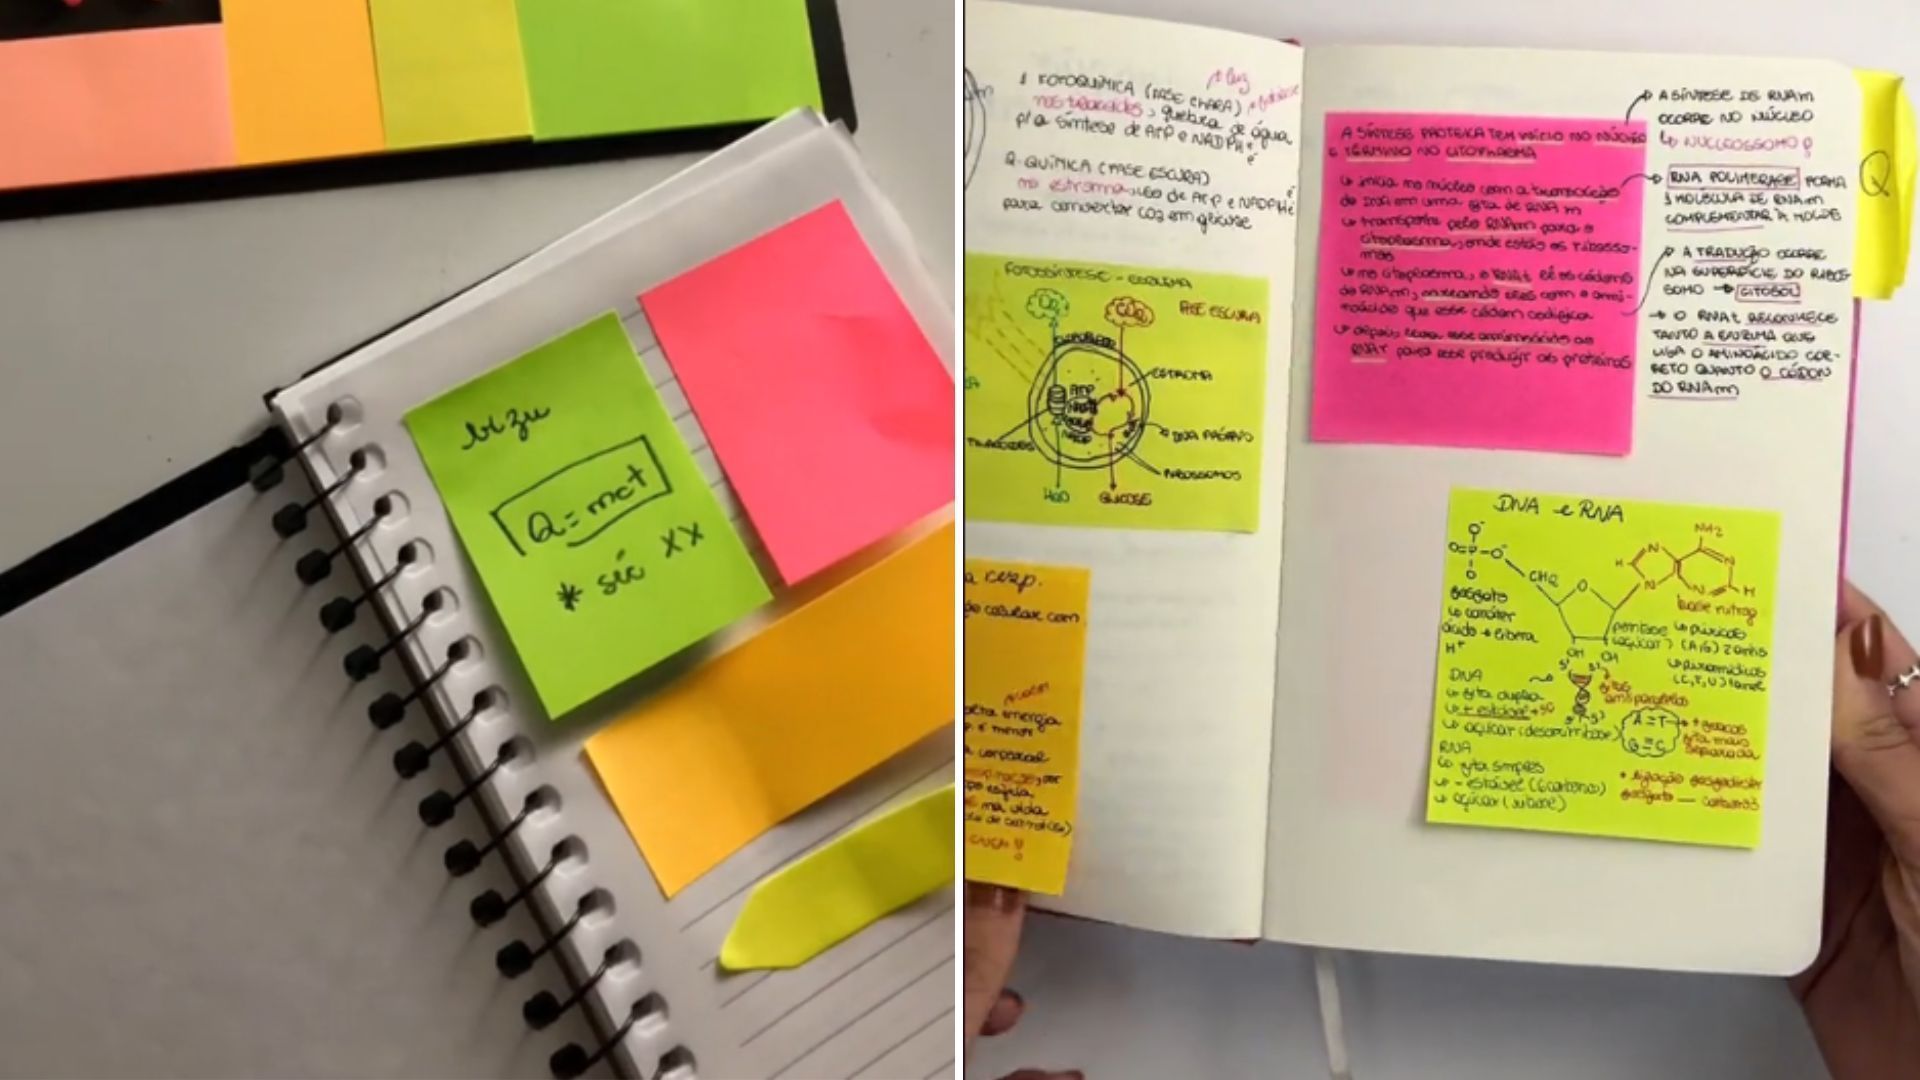 bizu
Q=mct
* séc XX
+ luz
1. FOTOQUÍMICA (FASE CLARA)
nos tilacoides, quebra de água
p/a síntese de ATP e NADPH
2. QUÍMICA (FASE ESCURA)
no estroma, uso de ATP e NADPH
para converter CO2 em glicose
FOTOSSÍNTESE - ESQUEMA
FASE ESCURA
O2
CO2
ATP
NADP
ESTROMA
DNA PRÓPRIO
RIBOSSOMOS
TILACOIDES
H2O
GLICOSE
a resp.
celular com
energia
é menor
corporal
na vida
A SÍNTESE PROTEICA TEM INÍCIO NO NÚCLEO
E TÉRMINO NO CITOPLASMA
↳ inicia no núcleo com a transcrição
do DNA em uma fita de RNAm
↳ transporte pelo RNAm para o
citoplasma, onde estão os ribosso-
mos
↳ no citoplasma, o RNAt lê os códons
do RNAm,
que esse códon codifica
↳ depois, esse aminoácidos ao
para esse produzir as proteínas
→ A SÍNTESE DE RNAm
OCORRE NO NÚCLEO
↳ NUCLEOSSOMO?
→ RNA POLIMERASE FORMA
1 MOLÉCULA DE RNAm
COMPLEMENTAR À MOLDE
→ A TRADUÇÃO OCORRE
NA SUPERFÍCIE DO RIBOS-
SOMO → CITOSOL
→ O RNAt RECONHECE
TANTO A ENZIMA QUE
LIGA O AMINOÁCIDO COR-
RETO QUANTO O CÓDON
DO RNAm
Q
DNA e RNA
NH2
O=P-O
CH2
N
N
N
N
H
H
O
OH
OH
fosfato
↳ caráter
ácido → libera
H+
base nitrog
pentose
(açúcar)
↳ púricas
(A,G) 2 anéis
↳ pirimídicas
(C,T,U) 1 anel
DNA
↳ fita dupla
↳ + estável
↳ açúcar (desoxirribose)
fitas
antiparalelas
A=T
G≡C
fita mais
separada
RNA
↳ fita simples
↳ - estável
↳ açúcar (ribose)
* ligação fosfodiéster
fosfato — carbono 3